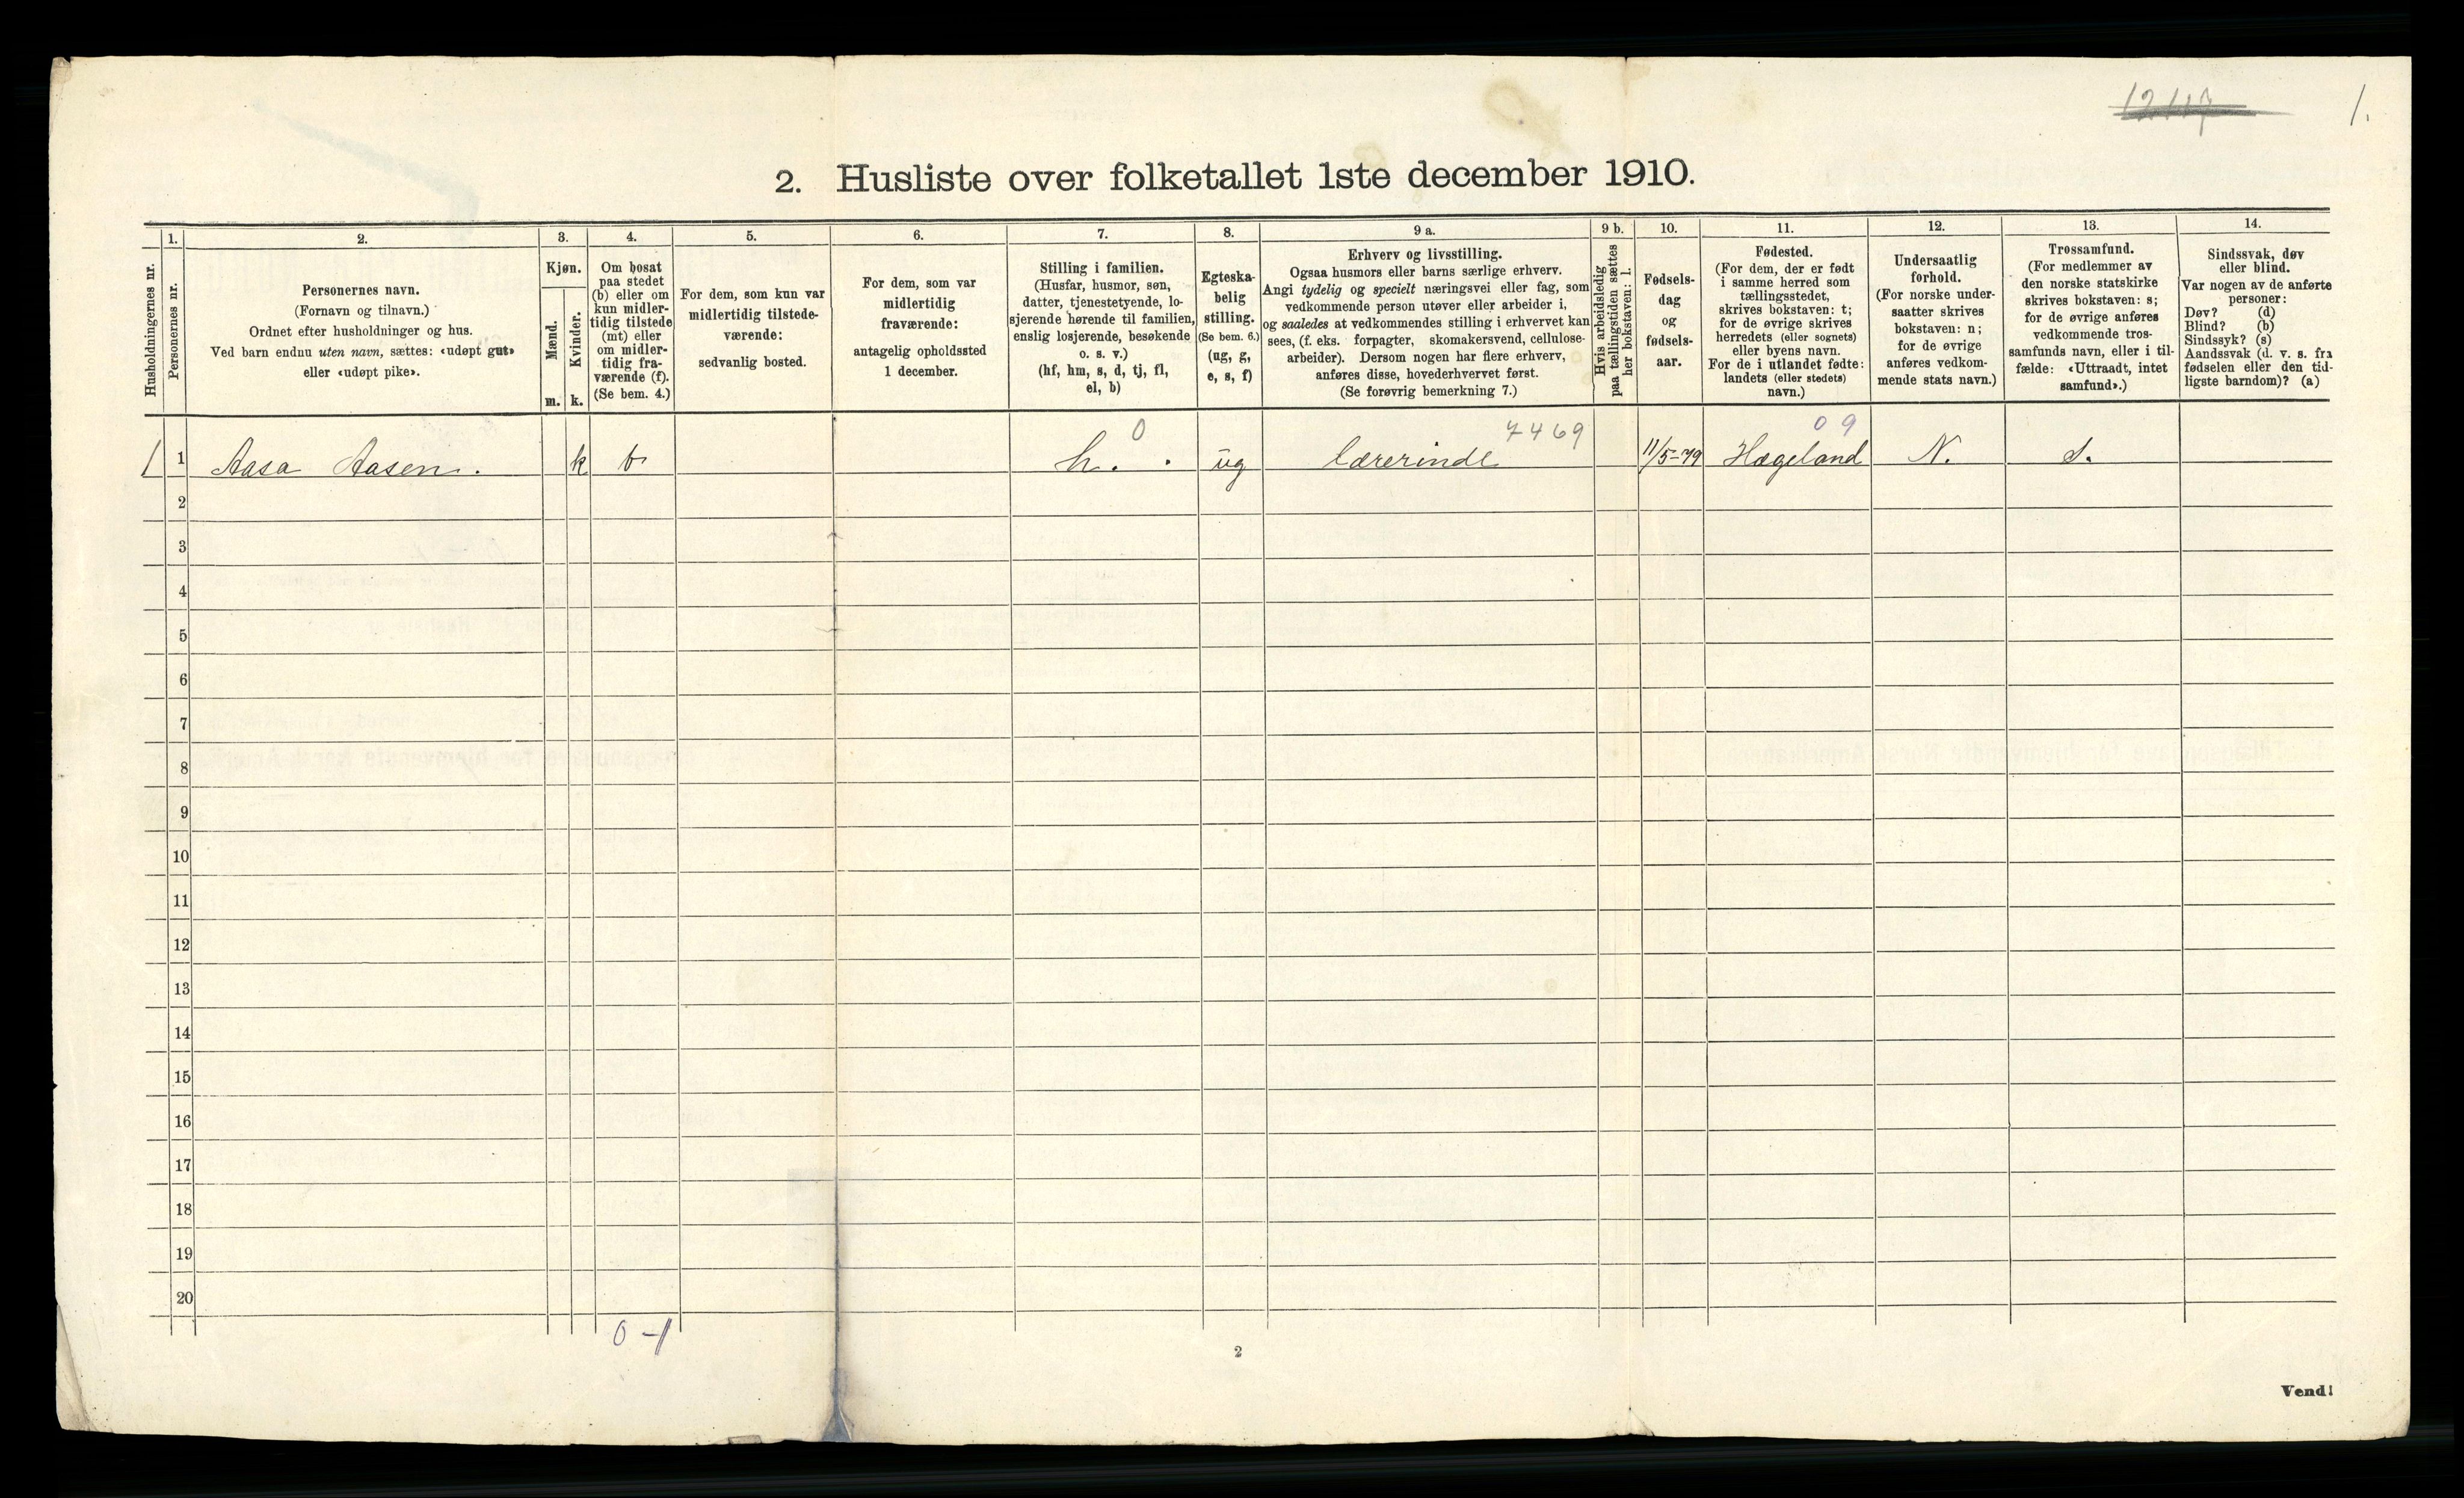 12117
1.
2. Husliste over folketallet 1ste december 1910.
Husholdningernes nr.
1.
Personernes nr.
2.
Personernes navn.
(Fornavn og tilnavn.)
Ordnet efter husholdninger og hus.
Ved barn endnu uten navn, sættes: «udøpt gut»
eller «udøpt pike».
3.
Kjøn.
Mænd.
m.
Kvinder.
k.
4.
Om bosat
paa stedet
(b) eller om
kun midler-
tidig tilstede
(mt) eller
om midler-
tidig fra-
værende (f).
(Se bem. 4.)
5.
For dem, som kun var
midlertidig tilstede-
værende:
sedvanlig bosted.
6.
For dem, som var
midlertidig
fraværende:
antagelig opholdssted
1 december.
7.
Stilling i familien.
(Husfar, husmor, søn,
datter, tjenestetyende, lo-
sjerende hørende til familien,
enslig losjerende, besøkende
o. s. v.)
(hf, hm, s, d, tj, fl,
el, b)
8.
Egteska-
belig
stilling.
(Se bem. 6.)
(ug, g,
e, s, f)
9 a.
Erhverv og livsstilling.
Ogsaa husmors eller barns særlige erhverv.
Angi tydelig og specielt næringsvei eller fag, som
vedkommende person utøver eller arbeider i,
og saaledes at vedkommendes stilling i erhvervet kan
sees, (f. eks. forpagter, skomakersvend, cellulose-
arbeider). Dersom nogen har flere erhverv,
anføres disse, hovederhvervet først.
(Se forøvrig bemerkning 7.)
9 b.
Hvis arbeidsledig
paa tællingstiden sættes
her bokstaven: l.
10.
Fødsels-
dag
og
fødsels-
aar.
11.
Fødested.
(For dem, der er født
i samme herred som
tællingsstedet,
skrives bokstaven: t;
for de øvrige skrives
herredets (eller sognets)
eller byens navn.
For de i utlandet fødte:
landets (eller stedets)
navn.)
12.
Undersaatlig
forhold.
(For norske under-
saatter skrives
bokstaven: n;
for de øvrige
anføres vedkom-
mende stats navn.)
13.
Trossamfund.
(For medlemmer av
den norske statskirke
skrives bokstaven: s;
for de øvrige anføres
vedkommende tros-
samfunds navn, eller i til-
fælde: «Uttraadt, intet
samfund».)
14.
Sindssvak, døv
eller blind.
Var nogen av de anførte
personer:
Døv? (d)
Blind? (b)
Sindssyk? (s)
Aandssvak (d. v. s. fra
fødselen eller den tid-
ligste barndom)? (a)
0 7469 09
1 1 Aasa Aasen. k b h. ug lærerinde 11/5-79 Hægeland N. S.
2
3
4
5
6
7
8
9
10
11
12
13
14
15
16
17
18
19
20
0-1
2
Vend!